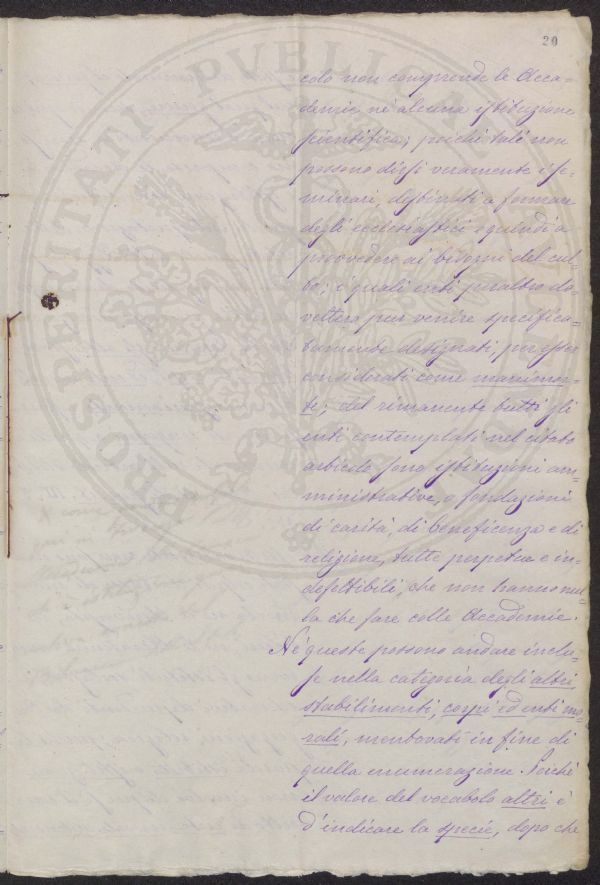 20
colo non comprende le Acca=
demie nè alcuna istituzione
scientifica; poichè tali non
possono dirsi veramente i Se=
minari, destinati a formare
degli ecclesiastici e quindi a
provvedere ai bisogni del cul=
to; i quali enti peraltro do=
vettero pur venire specifica=
tamente designati, per esser
considerati come manimor=
te; del rimanente tutti gli
enti contemplati nel citato
articolo sono istituzioni am=
ministrative, o fondazioni
di carità, di beneficenza e di
religione, tutte perpetue e in=
defettibili, che non hanno nul=
la che fare colle Accademie.
Nè queste possono andare inclu=
se nella categoria degli altri
stabilimenti, corpi ed enti mo=
rali, mentovati in fine di
quella enumerazione. Poichè
il valore del vocabolo altri è
d'indicare la specie, dopo che
PROSPERITATI PVBLICAE